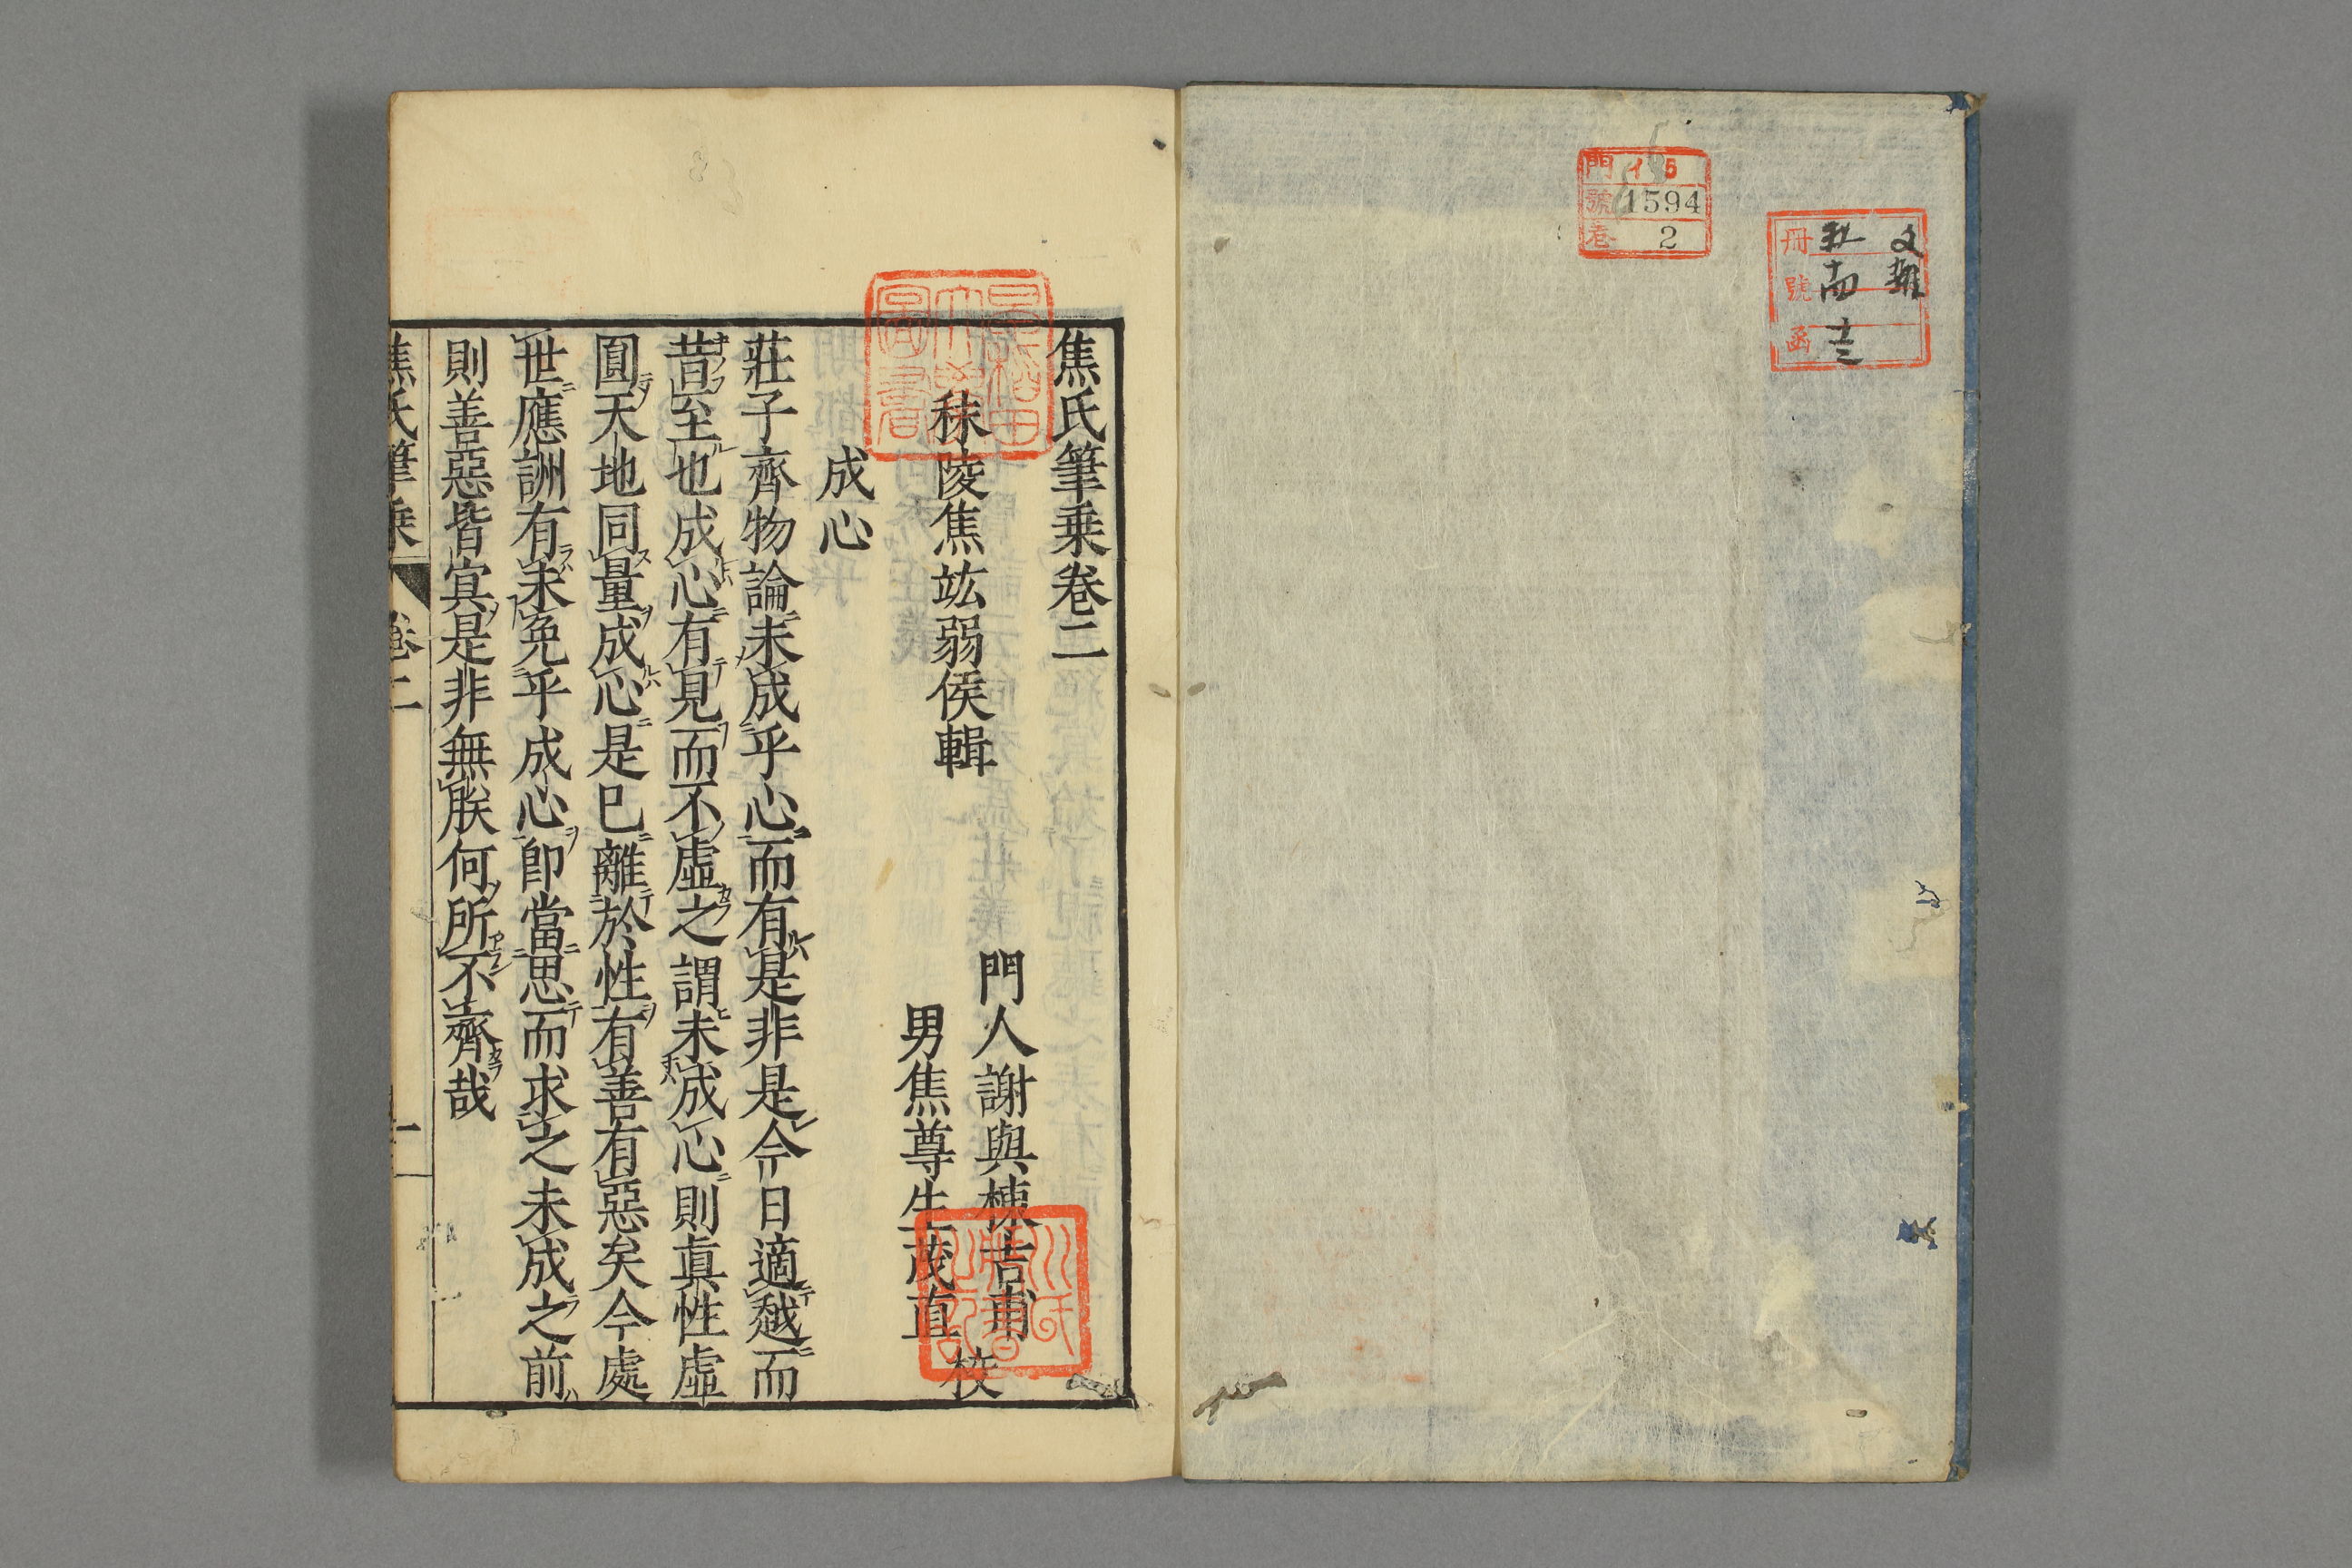 門 イ 5
號 1594
卷 2
冊
號
函
文雜
焦氏筆乗卷二
早稻田大學圖書
秣陵焦竑弱侯輯
門人謝與棟吉甫
男焦尊生茂直
校
成心
莊子齊物論未成乎心而有是非是今日適越而
昔至也成心有見而不虛之謂未成心則眞性虛
圓天地同量成心是已離於性有善有惡矣今處
世應詶有未免乎成心卽當思而求之未成之前
則善惡皆寘是非無朕何所不齊哉
焦氏筆乗
卷二
一